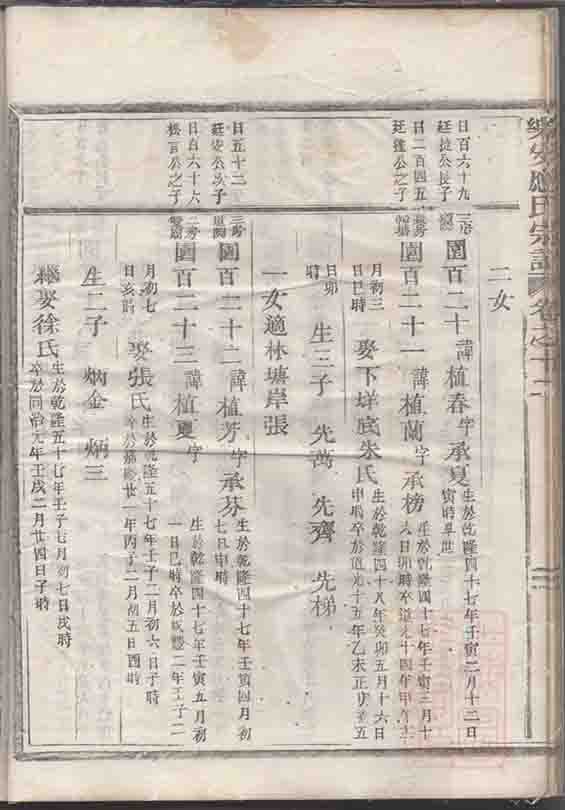 樂安 氏宗譜 卷之十二
二女
日百六十九 三房
廷 公長子
園百二十 諱植春字承夏 生於乾隆四十七年壬寅二月十二日
寅時 世
日二百四五
廷 公之子
園百二十一 諱植蘭字承榜 生於乾隆四十七年壬寅三月十
八日卯時卒道光十四年甲午
月初三
日巳時 娶下垟底朱氏 生於乾隆四十八年癸卯五月十六日
申時卒於道光十五年乙未正 五
日卯
時 生三子 先萬 先齊 先梯
日五十二 三房
廷 公次子
園百二十二 諱植芳字承芬 生於乾隆四十七年壬寅四月初
七日申時
一女適林塘岸張
日百六十六 二房
公之子
園百二十三 諱植夏字 生於乾隆四十七年壬寅五月初
一日巳時卒於咸豐二年壬子二
月初七
日亥時 娶張氏 生於乾隆五十七年壬子二月初六日子時
卒於嘉慶廿一年丙子二月初五日酉時
生二子 炳金 炳三
繼娶徐氏 生於乾隆五十七年壬子七月初七日戌時
卒於同治元年壬戌二月廿四日子時